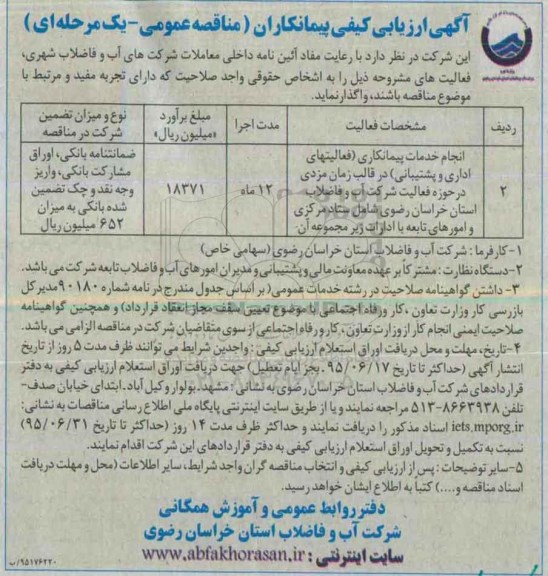 آگهی ارزیابی کیفی پیمانکاران (مناقصه عمومی-یک مرحله‌ای)
این شرکت در نظر دارد با رعایت مفاد آئین نامه داخلی معاملات شرکت های آب و فاضلاب شهری،
فعالیت های مشروحه ذیل را به اشخاص حقوقی واجد صلاحیت که دارای تجربه مفید و مرتبط با
موضوع مناقصه باشند، واگذار نماید.
ردیف
مشخصات فعالیت
مدت اجرا
مبلغ برآورد
«میلیون ریال»
نوع و میزان تضمین
شرکت در مناقصه
۲
انجام خدمات پیمانکاری (فعالیتهای
اداری و پشتیبانی) در قالب زمان مزدی
در حوزه فعالیت شرکت آب و فاضلاب
استان خراسان رضوی شامل ستاد مرکزی
و امورهای تابعه یا ادارات زیر مجموعه آن.
۱۲ ماه
۱۸۳۷۱
ضمانتنامه بانکی، اوراق
مشارکت بانکی، واریز
وجه نقد و چک تضمین
شده بانکی به میزان
۶۵۲ میلیون ریال
۱-کارفرما: شرکت آب و فاضلاب استان خراسان رضوی (سهامی خاص)
۲-دستگاه نظارت: مشترکا بر عهده معاونت مالی و پشتیبانی و مدیران امورهای آب و فاضلاب تابعه شرکت می باشد.
۳- داشتن گواهینامه صلاحیت در رشته خدمات عمومی (بر اساس جدول مندرج در نامه شماره ۹۰۱۸۰ مدیرکل
بازرسی کار وزارت تعاون، کار ورفاه اجتماعی با موضوع تعیین سقف مجاز انعقاد قرارداد) و همچنین گواهینامه
صلاحیت ایمنی انجام کار از وزارت تعاون، کار و رفاه اجتماعی از سوی متقاضیان شرکت در مناقصه الزامی می باشد.
۴-تاریخ، مهلت و محل دریافت اوراق استعلام ارزیابی کیفی: واجدین شرایط می توانند ظرف مدت ۵ روز از تاریخ
انتشار آگهی (حداکثر تا تاریخ ۹۵/۰۶/۱۷ .بجز ایام تعطیل) جهت دریافت اوراق استعلام ارزیابی کیفی به دفتر
قراردادهای شرکت آب و فاضلاب استان خراسان رضوی به نشانی: مشهد.بولوار وکیل آباد.ابتدای خیابان صدف-
تلفن ۸۶۶۳۹۳۸-۵۱۳ مراجعه نمایند و یا از طریق سایت اینترنتی پایگاه ملی اطلاع رسانی مناقصات به نشانی:
iets.mporg.ir اسناد مذکور را دریافت نمایند و حداکثر ظرف مدت ۱۴ روز (حداکثر تا تاریخ ۹۵/۰۶/۳۱)
نسبت به تکمیل و تحویل اوراق استعلام ارزیابی کیفی به دفتر قراردادهای این شرکت اقدام نمایند.
۵-سایر توضیحات: پس از ارزیابی کیفی و انتخاب مناقصه گران واجد شرایط، سایر اطلاعات (محل و مهلت دریافت
اسناد مناقصه و....) کتباً به اطلاع ایشان خواهد رسید.
دفتر روابط عمومی و آموزش همگانی
شرکت آب و فاضلاب استان خراسان رضوی
سایت اینترنتی: www.abfakhorasan.ir
۹۵۱۷۶۲۲۰/ب